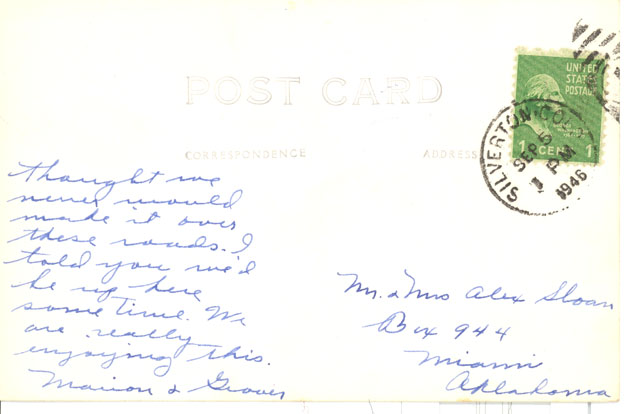 POST CARD
CORRESPONDENCE
ADDRESS
UNITED
STATES
POSTAGE
1 CENT 1
SILVERTON, COLO.
SEP
1 PM
1946
thought we
never would
made it over
these roads. I
told you we'd
be up here
some time. We
are really
enjoying this.
Marion & Grover
Mr. & Mrs Alex Sloan
Box 944
Miami
Oklahoma